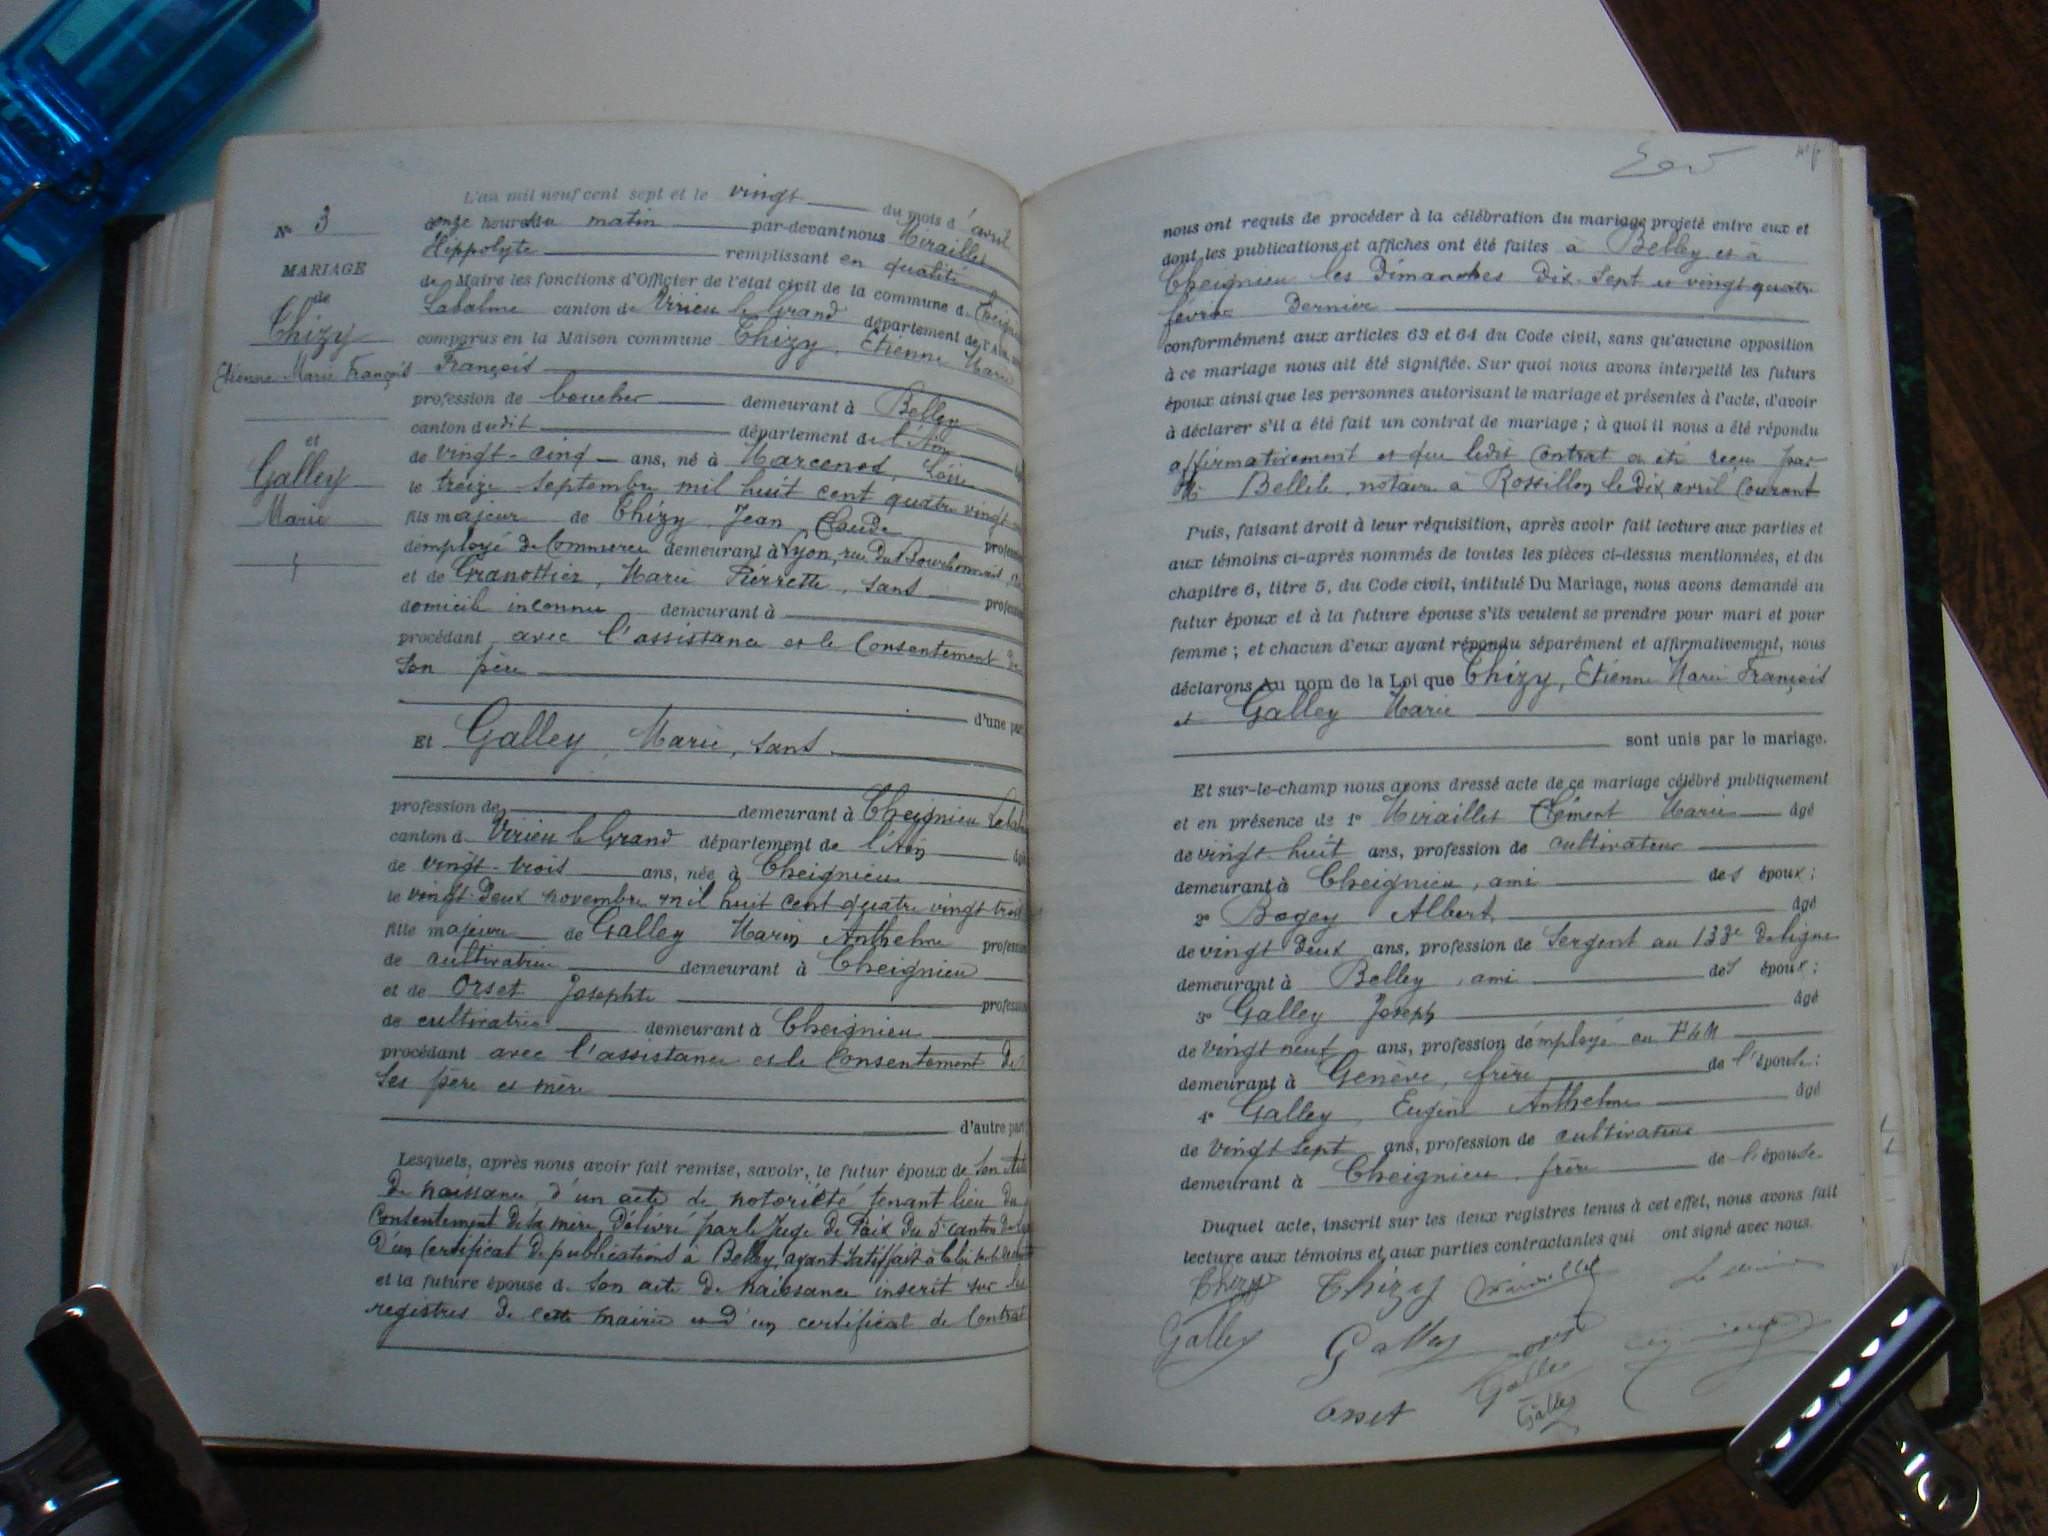 N° 3
MARIAGE
de
Thizy
Etienne Marie François
et
Galley
Marie
L'an mil neuf cent sept et le vingt du mois d'avril
onze heures du matin par-devant nous Miraillet
Hippolyte remplissant en qualité
de Maire les fonctions d'Officier de l'état civil de la commune d
Labalme canton de Virieu le Grand département de l'Ain,
comparus en la Maison commune Thizy, Etienne Marie
François
profession de boucher demeurant à Belley
canton dudit département de l'Ain
de vingt-cinq ans, né à Marcenod, Loire
le treize septembre mil huit cent quatre vingt
fils majeur de Thizy, Jean Claude profession
d'employé de Commerce demeurant à Lyon, rue du Bourbonnais
et de Granottier, Marie Pierrette, sans profession
domicile inconnu demeurant à
procédant avec l'assistance et le Consentement de
son père
d'une part
Et Galley, Marie, sans
profession de demeurant à Cheignieu Labalme
canton d. Virieu le Grand département de l'Ain âgé
de vingt-trois ans, née à Cheignieu
le vingt-deux novembre mil huit cent quatre vingt trois
fille majeure de Galley Marin Anthelme profession
de cultivateur demeurant à Cheignieu
et de Orset Josephte profession
de cultivatrice demeurant à Cheignieu
procédant avec l'assistance et le Consentement de
ses père et mère
d'autre part
Lesquels, après nous avoir fait remise, savoir, le futur époux de son acte
de naissance, d'un acte de notoriété tenant lieu du
Consentement de la mère, délivré par le Juge de Paix du 5e canton de
d'un Certificat de publications à Belley, ayant satisfait à la loi
et la future épouse d. son acte de naissance inscrit sur les
registres de cette mairie et d'un certificat de Contrat
nous ont requis de procéder à la célébration du mariage projeté entre eux et
dont les publications et affiches ont été faites à Belley et à
Cheignieu les Dimanches dix-sept et vingt quatre
février dernier
conformément aux articles 63 et 64 du Code civil, sans qu'aucune opposition
à ce mariage nous ait été signifiée. Sur quoi nous avons interpellé les futurs
époux ainsi que les personnes autorisant le mariage et présentes à l'acte, d'avoir
à déclarer s'il a été fait un contrat de mariage ; à quoi il nous a été répondu
affirmativement et que ledit Contrat a été reçu par
Me Bellile, notaire à Rossillon le dix avril Courant
Puis, faisant droit à leur réquisition, après avoir fait lecture aux parties et
aux témoins ci-après nommés de toutes les pièces ci-dessus mentionnées, et du
chapitre 6, titre 5, du Code civil, intitulé Du Mariage, nous avons demandé au
futur époux et à la future épouse s'ils veulent se prendre pour mari et pour
femme ; et chacun d'eux ayant répondu séparément et affirmativement, nous
déclarons Au nom de la Loi que Thizy, Etienne Marie François
et Galley Marie
sont unis par le mariage.
Et sur-le-champ nous avons dressé acte de ce mariage célébré publiquement
et en présence de 1° Miraillet Clément Marie âgé
de vingt huit ans, profession de cultivateur
demeurant à Cheignieu, ami des époux ;
2° Bogey Albert âgé
de vingt deux ans, profession de Sergent au 133e de ligne
demeurant à Belley, ami des époux ;
3° Galley Joseph âgé
de vingt neuf ans, profession d'employé au
demeurant à Genève, frère de l'épouse ;
4° Galley, Eugène Anthelme âgé
de vingt sept ans, profession de cultivateur
demeurant à Cheignieu, frère de l'épouse
Duquel acte, inscrit sur les deux registres tenus à cet effet, nous avons fait
lecture aux témoins et aux parties contractantes qui ont signé avec nous.
Thizy Thizy Miraillet Le maire
Galley Galley
Galley
Orset Galley